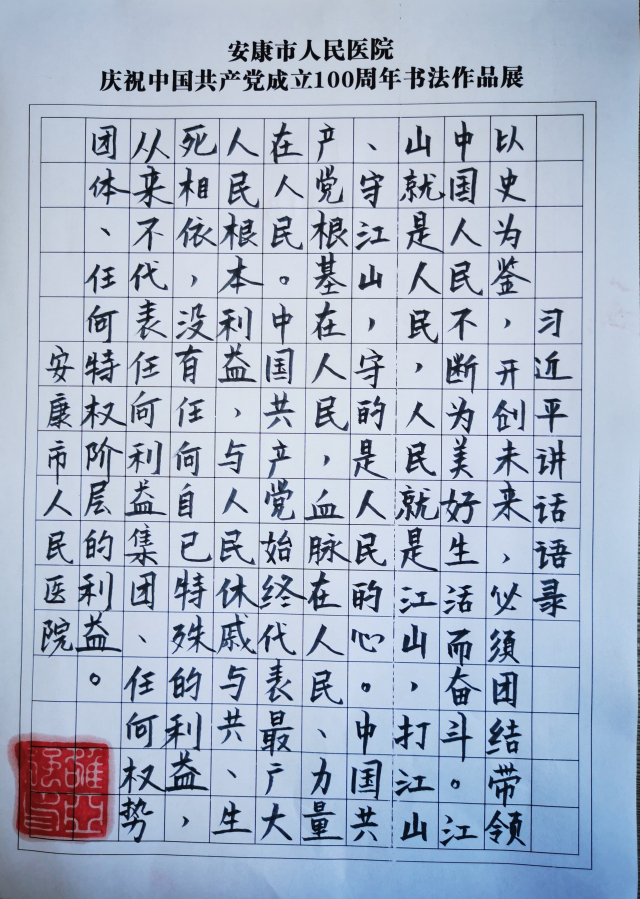 安康市人民医院
庆祝中国共产党成立100周年书法作品展
习近平讲话语录
以史为鉴，开创未来，必须团结带领
中国人民不断为美好生活而奋斗。江
山就是人民，人民就是江山，打江山
、守江山，守的是人民的心。中国共
产党根基在人民，血脉在人民、力量
在人民。中国共产党始终代表最广大
人民根本利益，与人民休戚与共、生
死相依，没有任何自已特殊的利益，
从来不代表任何利益集团、任何权势
团体、任何特权阶层的利益。
安康市人民医院